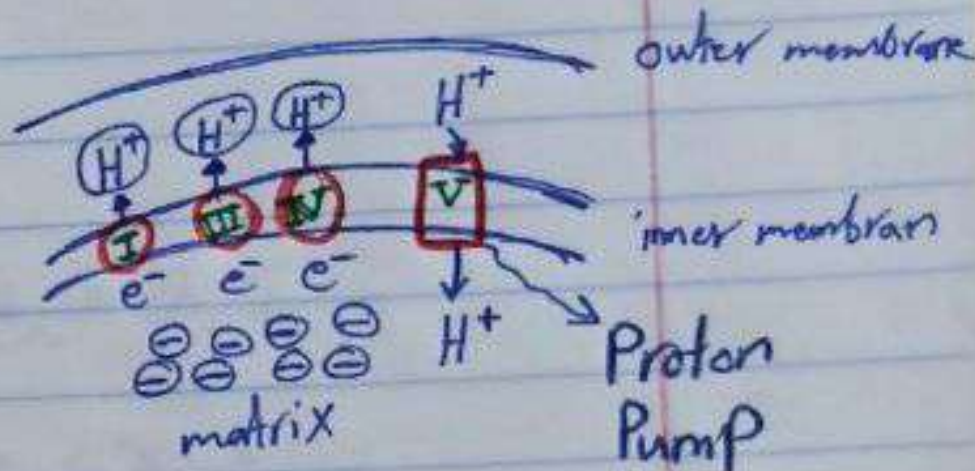 outer membrane
H⁺ H⁺ H⁺ H⁺
I III IV V
inner membran
e⁻ e⁻ e⁻
⊖ ⊖ ⊖ ⊖
H⁺
⊖ ⊖ ⊖ ⊖
Proton
matrix
Pump